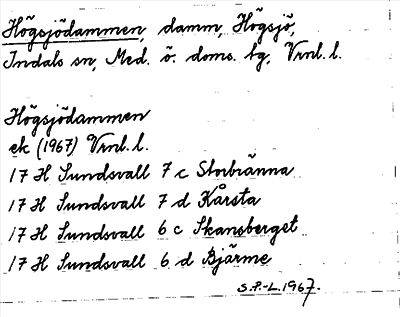 Högsjödammen, damm, Högsjö,
Indals sn, Med. ö. doms. tg, Vrnl. l.
Högsjödammen
ek (1967) Vrnl. l.
17 H Sundsvall 7 c Storbränna
17 H Sundsvall 7 d Kårsta
17 H Sundsvall 6 c Skansberget
17 H Sundsvall 6 d Bjärme
S.P.-L. 1967.